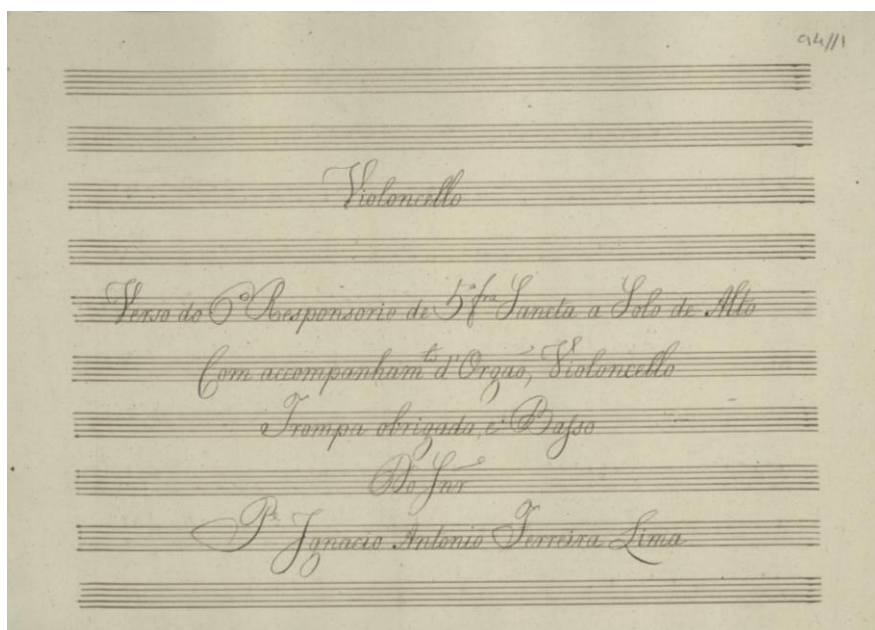 94//1
Violoncello
Verso do 6º Responsorio de 5ª fra Sancta a Solo de Alto
Com accompanhamto d'Orgaõ, Violoncello
Trompa obrigada, e Basso
Do Snr
Pe Ignacio Antonio Ferreira Lima